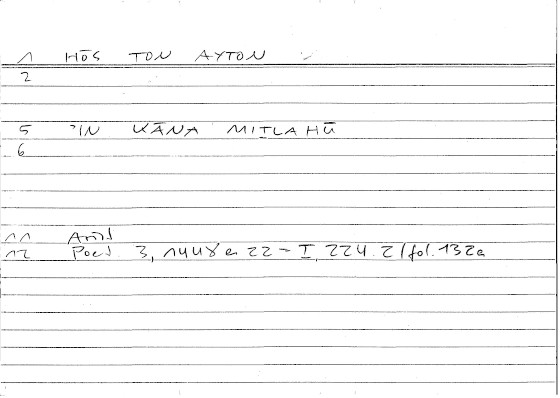 1 HŌS TON AYTON
2
5 ʾIN KĀNA MITLAHŪ
6
11 Arist
12 Poet. 3, 1448 a 22 – I, 224.2 / fol. 132a